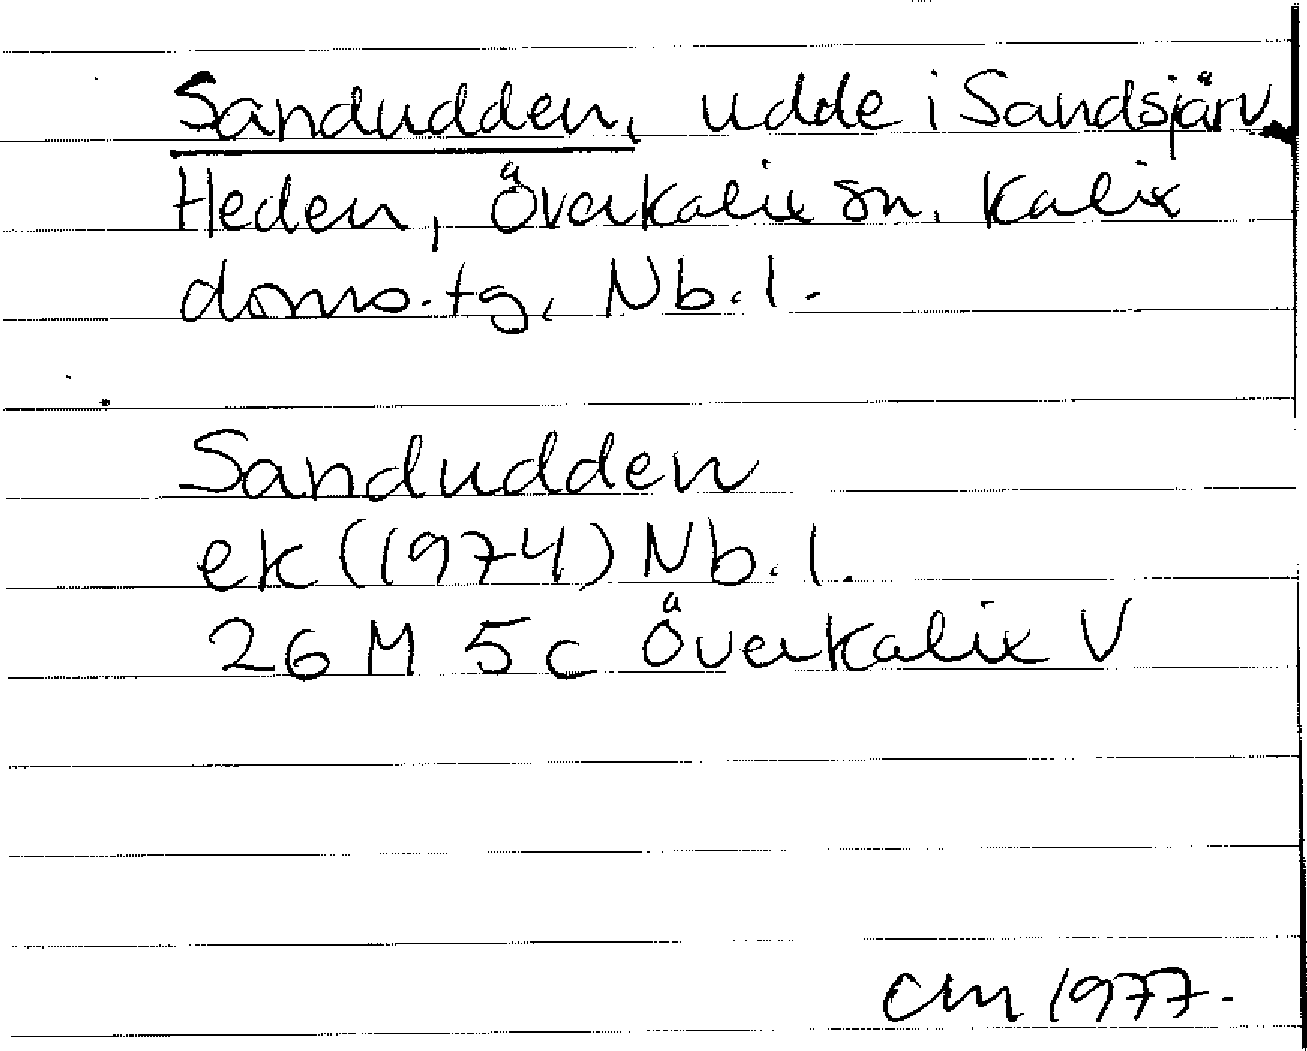 Sandudden, udde i Sandsjärv,
Heden, Överkalix sn. Kalix
doms.tg, Nb.l.
Sandudden
ek (1974) Nb.l.
26 M 5c Överkalix V
CM 1977.